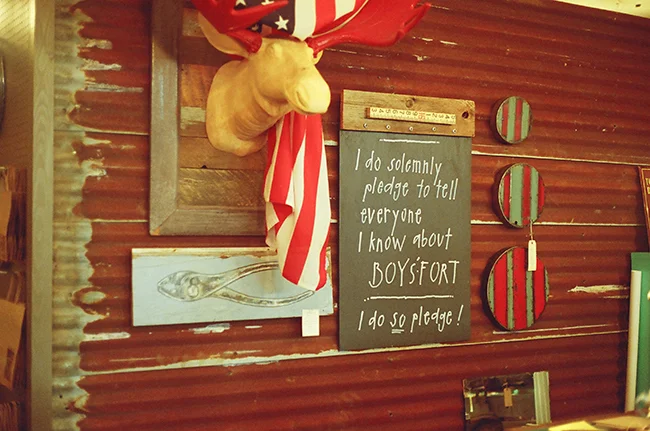 I do solemnly
pledge to tell
everyone
I know about
BOYS'FORT
I do so pledge!